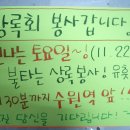 상록회 봉사갑니다
오는 토요일~! (11.22
불타는 상록봉사! 유훅
시30분까지 수원역 앞!
당신을 기다립니다!